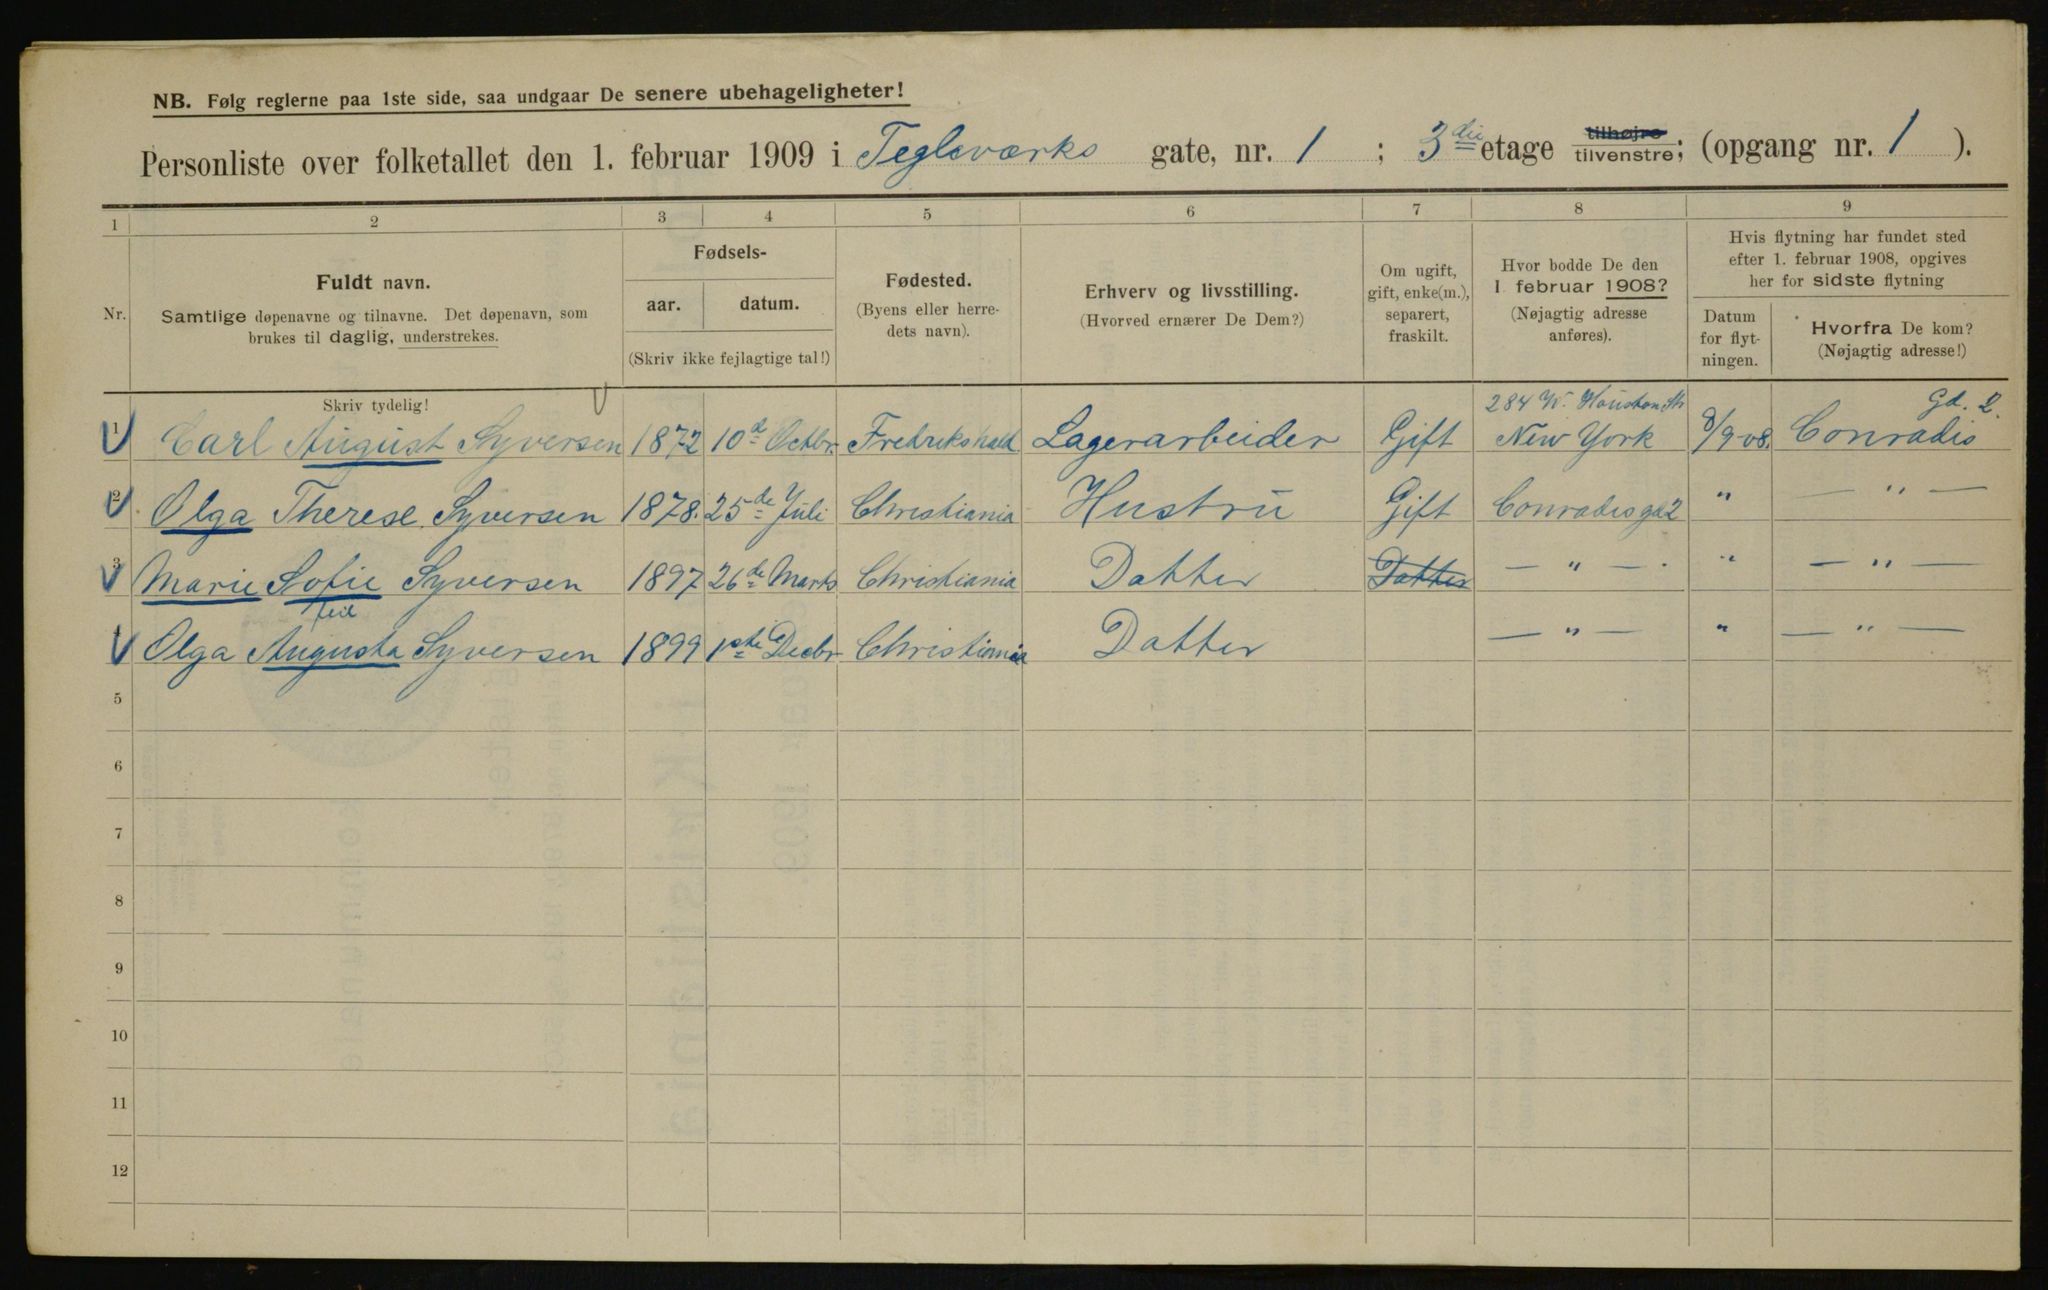 NB. Følg reglerne paa 1ste side, saa undgaar De senere ubehageligheter!
Personliste over folketallet den 1. februar 1909 i Teglsværks gate, nr. 1 ; 3die etage tilhøjre tilvenstre; (opgang nr. 1 ).
1 2 3 4 5 6 7 8 9
Nr.
Fuldt navn.
Samtlige døpenavne og tilnavne. Det døpenavn, som
brukes til daglig, understrekes.
Fødsels-
aar. datum.
(Skriv ikke fejlagtige tal!)
Fødested.
(Byens eller herre-
dets navn).
Erhverv og livsstilling.
(Hvorved ernærer De Dem?)
Om ugift,
gift, enke(m.),
separert,
fraskilt.
Hvor bodde De den
1 februar 1908?
(Nøjagtig adresse
anføres).
Hvis flytning har fundet sted
efter 1. februar 1908, opgives
her for sidste flytning
Datum
for flyt-
ningen.
Hvorfra De kom?
(Nøjagtig adresse!)
Skriv tydelig!
284 W. Houston Str
Gd. 2.
1 Carl August Syversen 1872 10d Octbr. Fredrikshald Lagerarbeider Gift New York 8/9 08. Conradis
2 Olga Therese Syversen 1878. 25de Juli Christiania Hustru Gift Conradisgd 2 " — " —
3 Marie Sofie Syversen 1897 26de Marts Christiania Datter Datter — " — " — " —
feil
4 Olga Augusta Syversen 1899 1ste Decbr Christiania Datter — " — " — " —
5
6
7
8
9
10
11
12